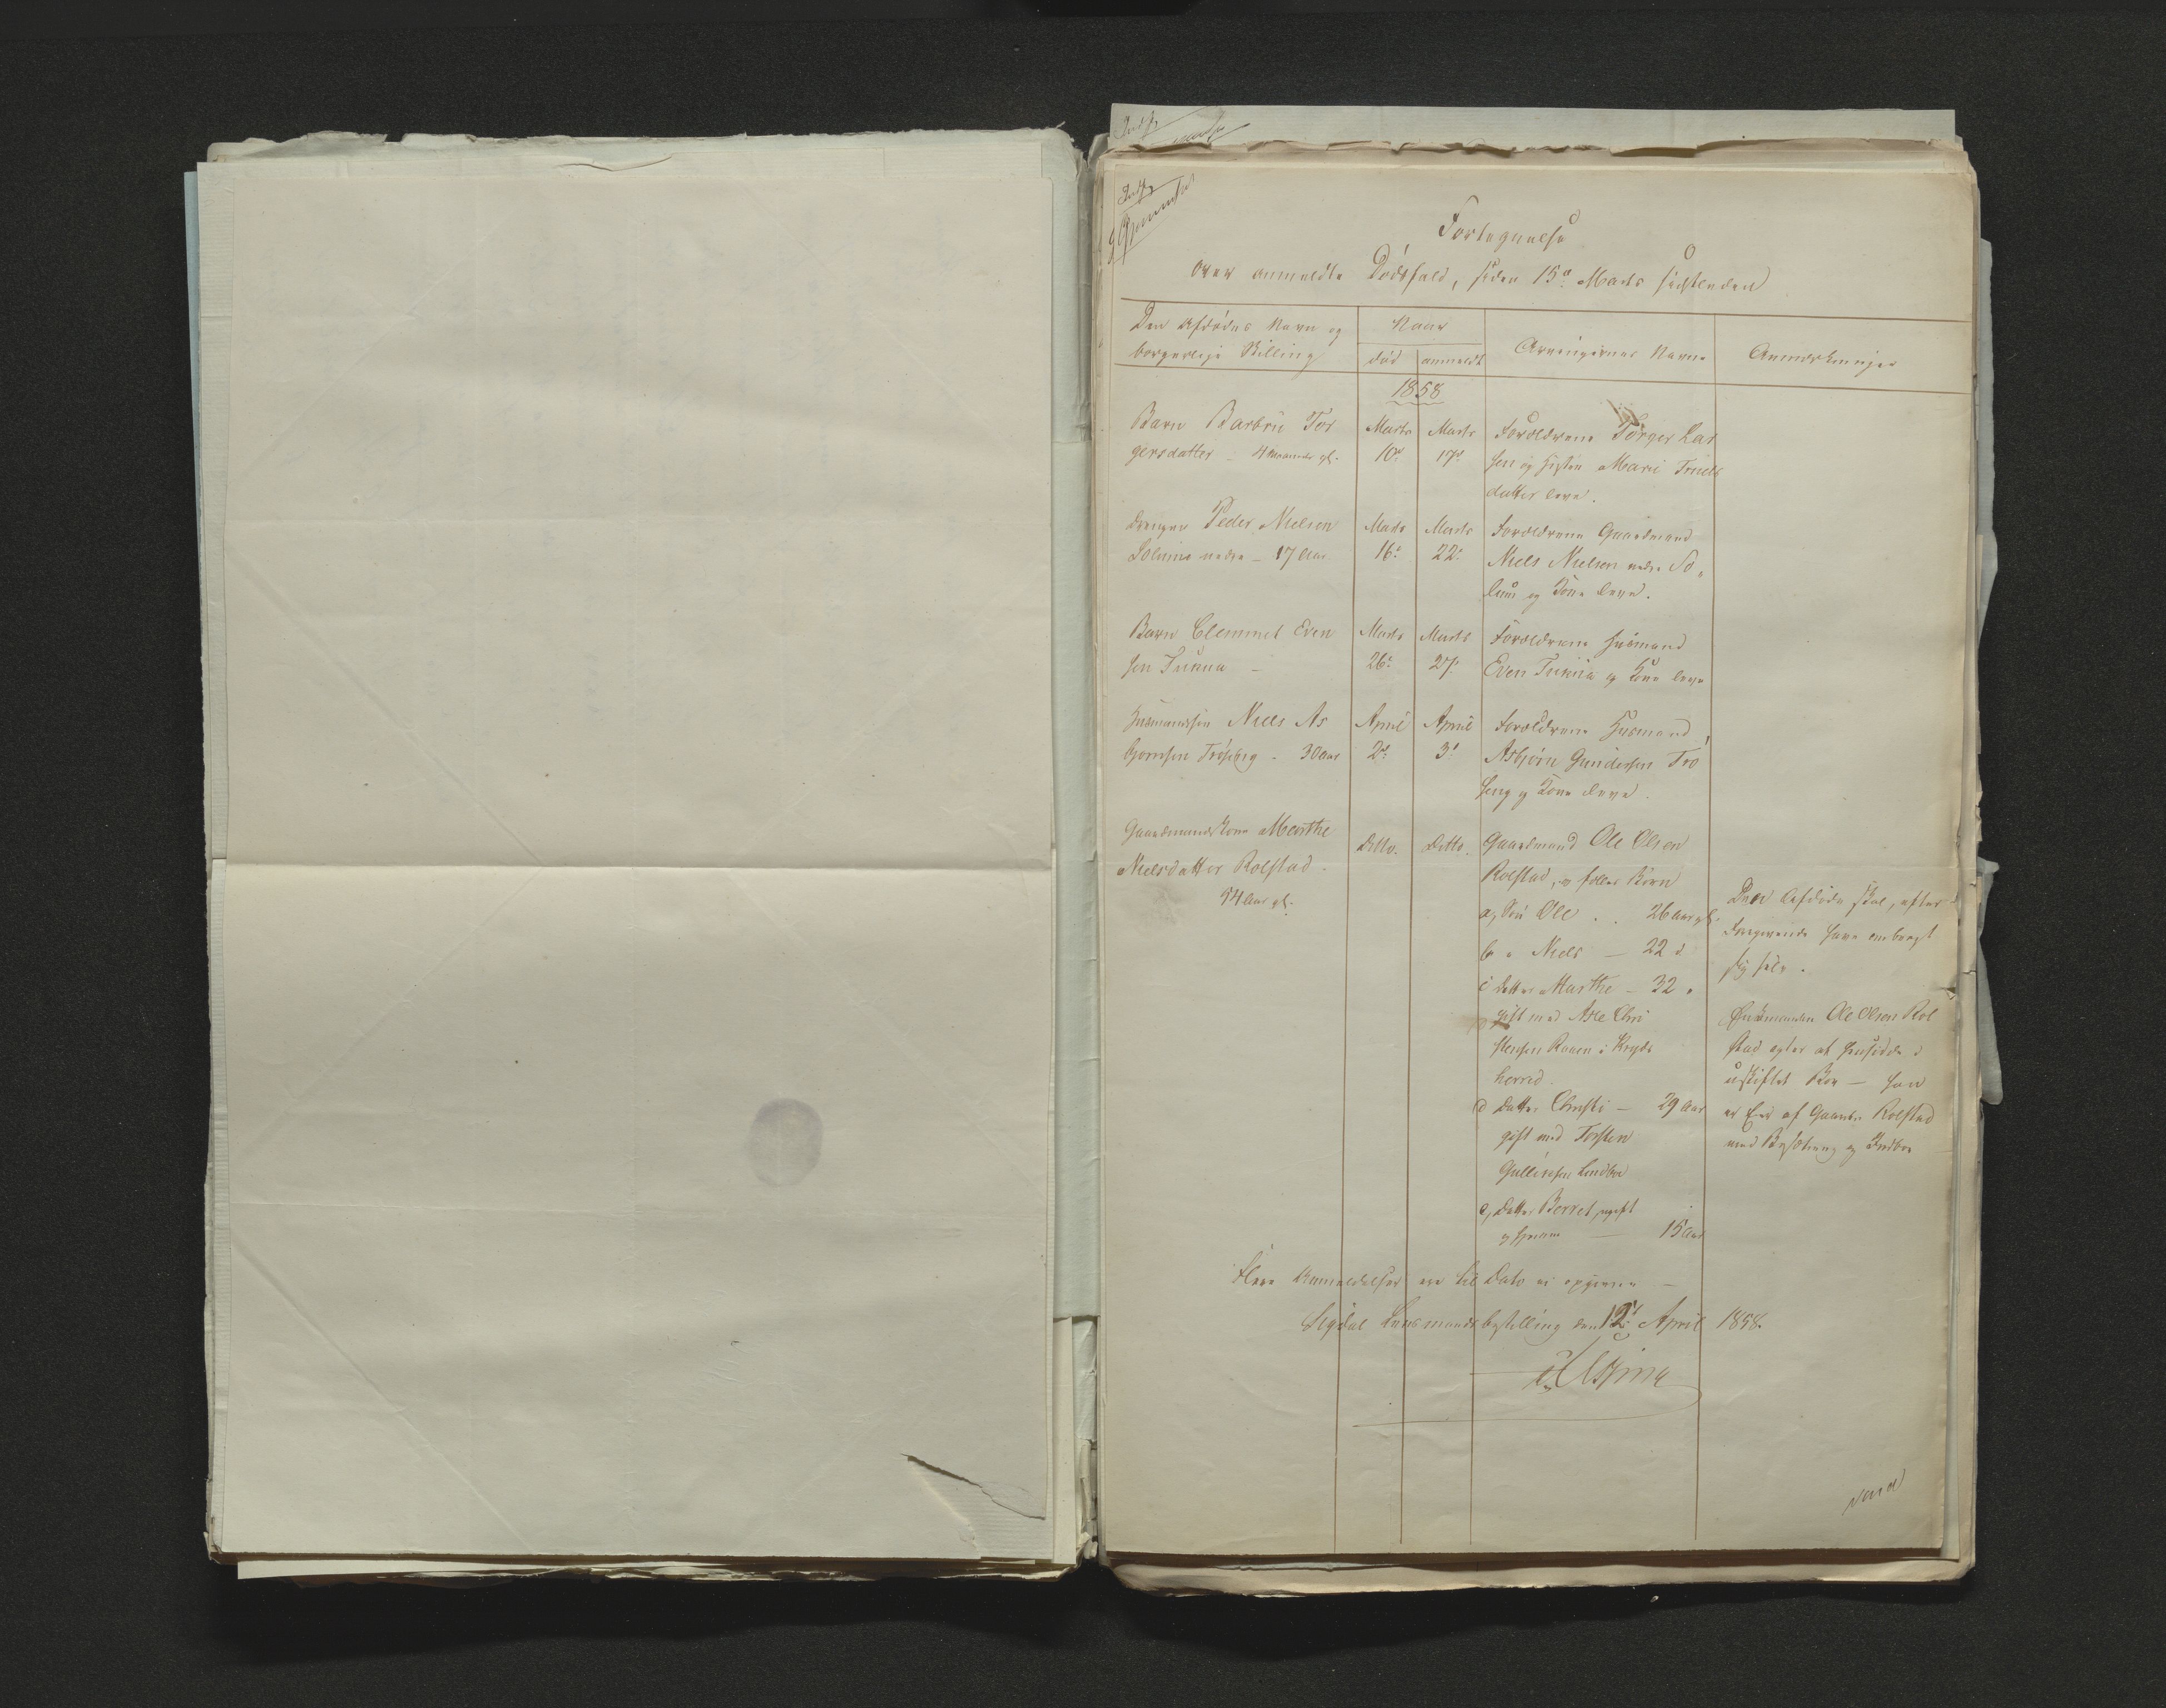 Fortegnelse
over anmeldte Dødsfald, siden 15de Marts sidstleden
Den Afdødes Navn og
borgerlige Stilling
Naar
død
anmeldt
Arvingernes Navne
Anmærkninger
1858
Barn Barbru Tor
gersdatter – 4 Maaneder gl.
Marts
10de
Marts
17de
Forældrene Torger Lar
sen og Hustru Mari Truels
datter leve.
Drengen Peder Nielsen
Solum nedre – 17 Aar
Marts
16de
Marts
22de
Forældrene Gaardmand
Niels Nielsen nedre So
lum og Kone leve.
Barn Clemmet Even
sen Turna –
Marts
26de
Marts
27de
Forældrene Husmand
Even Turna og Kone leve
Husmandssøn Niels As
bjørnsen Frøseng – 30 Aar
April
2den
April
3die
Forældrene Husmand
Asbjørn Gundersen Frø
seng og Kone leve.
Gaardmandskone Marthe
Nielsdatter Rolstad.
54 Aar gl.
Ditto.
Ditto.
Gaardmand Ole Olsen
Rolstad, og fælles Børn
a, Søn Ole . . 26 Aar gl.
b " Niels – 22 "
c Datter Marthe – 32 "
gift med Asle Chri
stensen Raaen i Kryds
herred.
d Datter Christi – 29 Aar
gift med Torsten
Gulliksen Lindbo
e, Datter Berret, ugift
og hjemme – 15 Aar
Den Afdøde skal, efter
Foregivende have ombragt
sig selv.
Enkemanden Ole Olsen Rol
stad agter at hensidde i
uskiftet Boe – han
er Eier af Gaarden Rolstad
med Besætning og Indboe
Flere Anmeldelser ere til Dato ei opgivne –
Sigdal Lensmandsbestilling den 12te April 1858.
vend